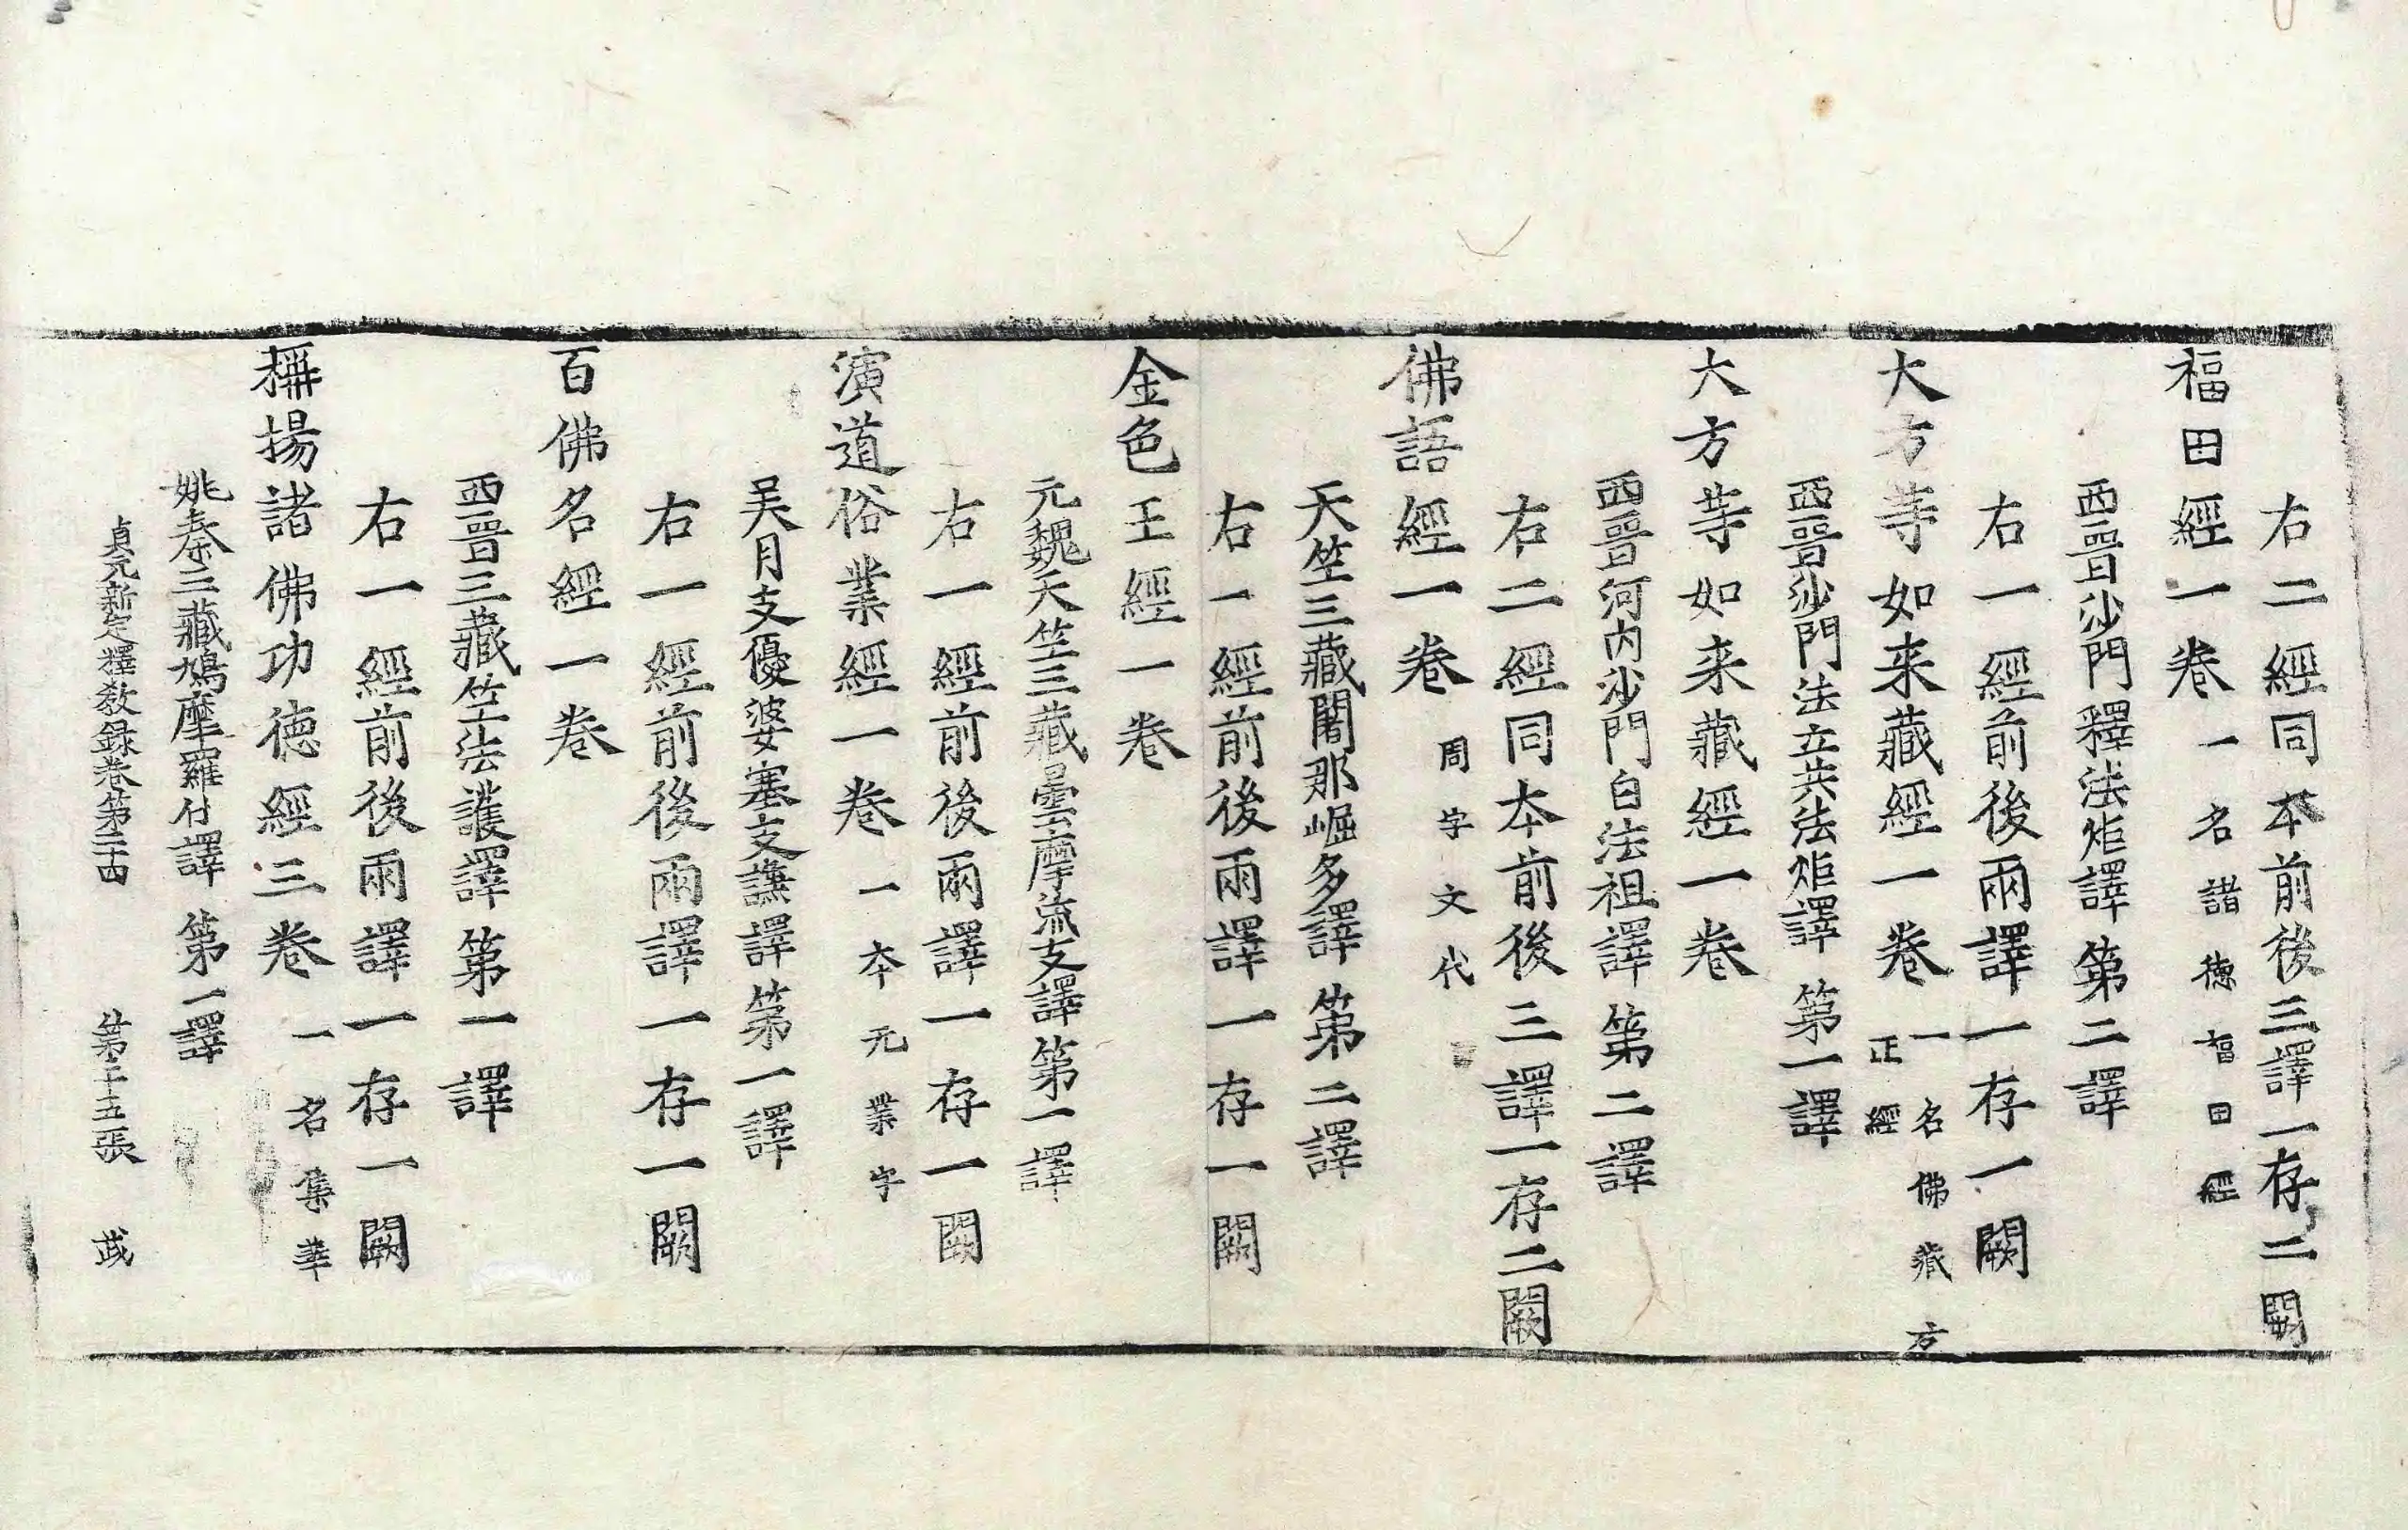 右二經同本前後三譯一存二闕
福田經一卷 一名諸德福田經
西晉沙門釋法炬譯 第二譯
右一經前後兩譯一存一闕
大方等如来藏經一卷 一名佛藏方正經
西晉沙門法立共法炬譯 第一譯
大方等如来藏經一卷
西晉河內沙門白法祖譯 第二譯
右二經同本前後三譯一存二闕
佛語經一卷 周字文代
天竺三藏闍那崛多譯 第二譯
右一經前後兩譯一存一闕
金色王經一卷
元魏天竺三藏曇摩流支譯 第一譯
右一經前後兩譯一存一闕
演道俗業經一卷 一本元業字
吴月支優婆塞支謙譯 第一譯
右一經前後兩譯一存一闕
百佛名經一卷
西晉三藏竺法護譯 第一譯
右一經前後兩譯一存一闕
稱揚諸佛功德經三卷 一名集華
姚秦三藏鳩摩羅什譯 第一譯
貞元新定釋教録卷第二十四 第二十五張